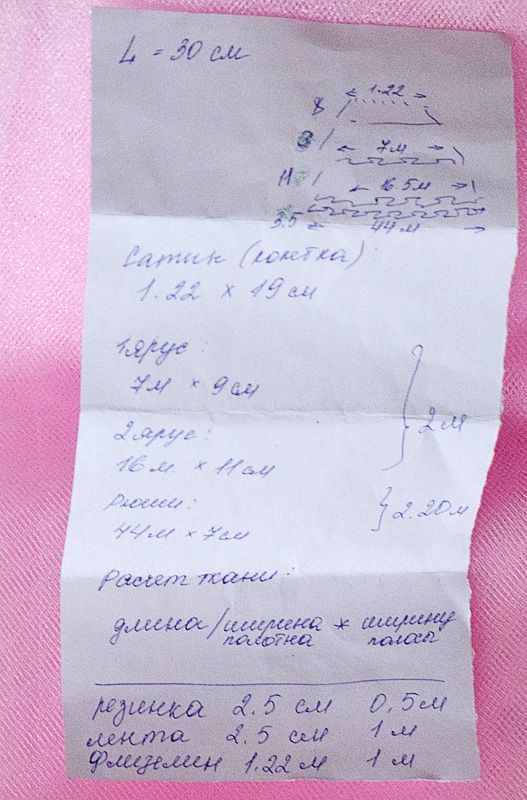 L = 30 см
1.22
8
7м
11
16.5м
3.5
44м
Сатин (кокетка):
1.22 × 19 см
1 ярус:
7м × 9см
2м
2 ярус:
16м × 11см
Рюши:
2.20м
44м × 7см
Расчет ткани:
длина / ширина полотна * ширину полосы
резинка 2.5 см 0,5м
лента 2.5 см 1м
флизелин 1.22м 1м